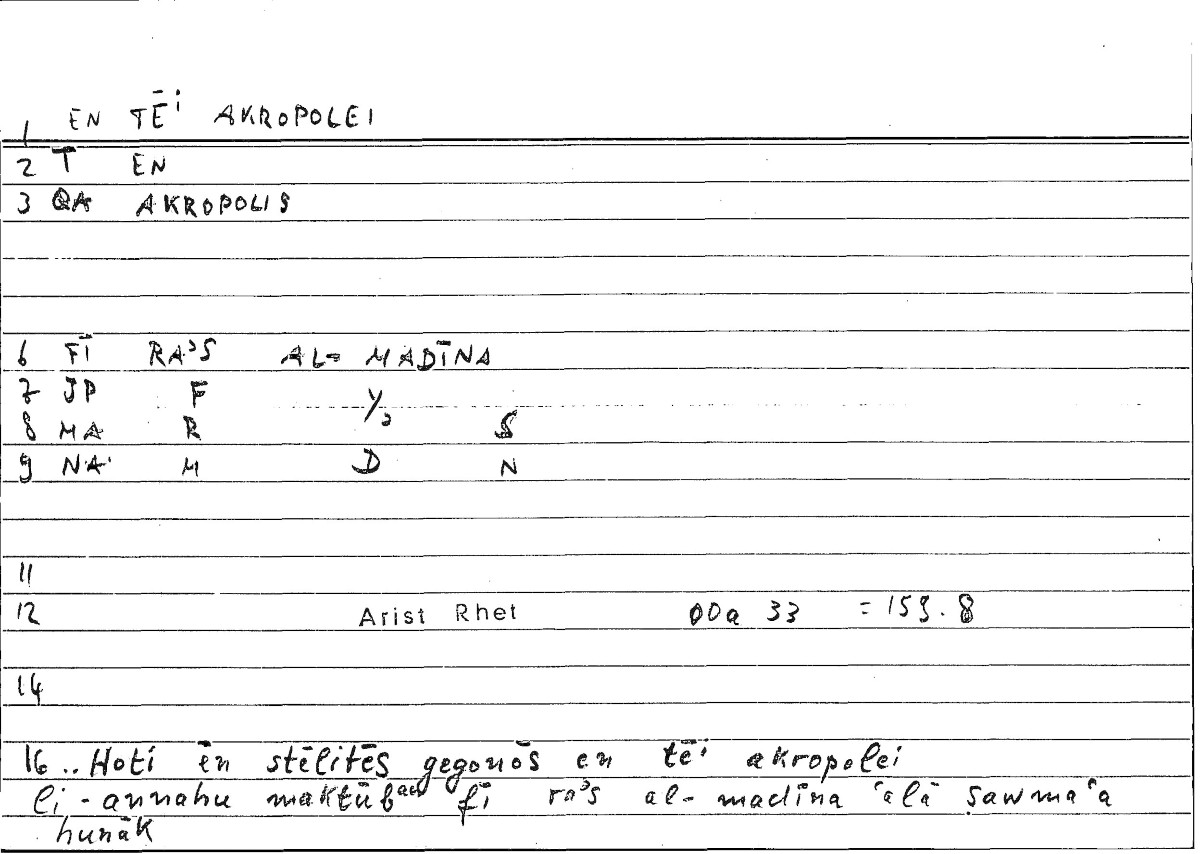 1 EN TĒⁱ AKROPOLEI
2 T EN
3 QA AKROPOLIS
6 FĪ RAʾS AL- MADĪNA
7 JP F Y/ʾ
8 MA R S
9 NA M D N
11
12 Arist Rhet 00a 33 = 159.8
14
16 .. Hoti ēn stēlitēs gegonōs en tēⁱ akropolei
li-annahu maktūbᵃⁿ fī raʾs al- madīna ʿalā ṣawmaʿa
hunāk